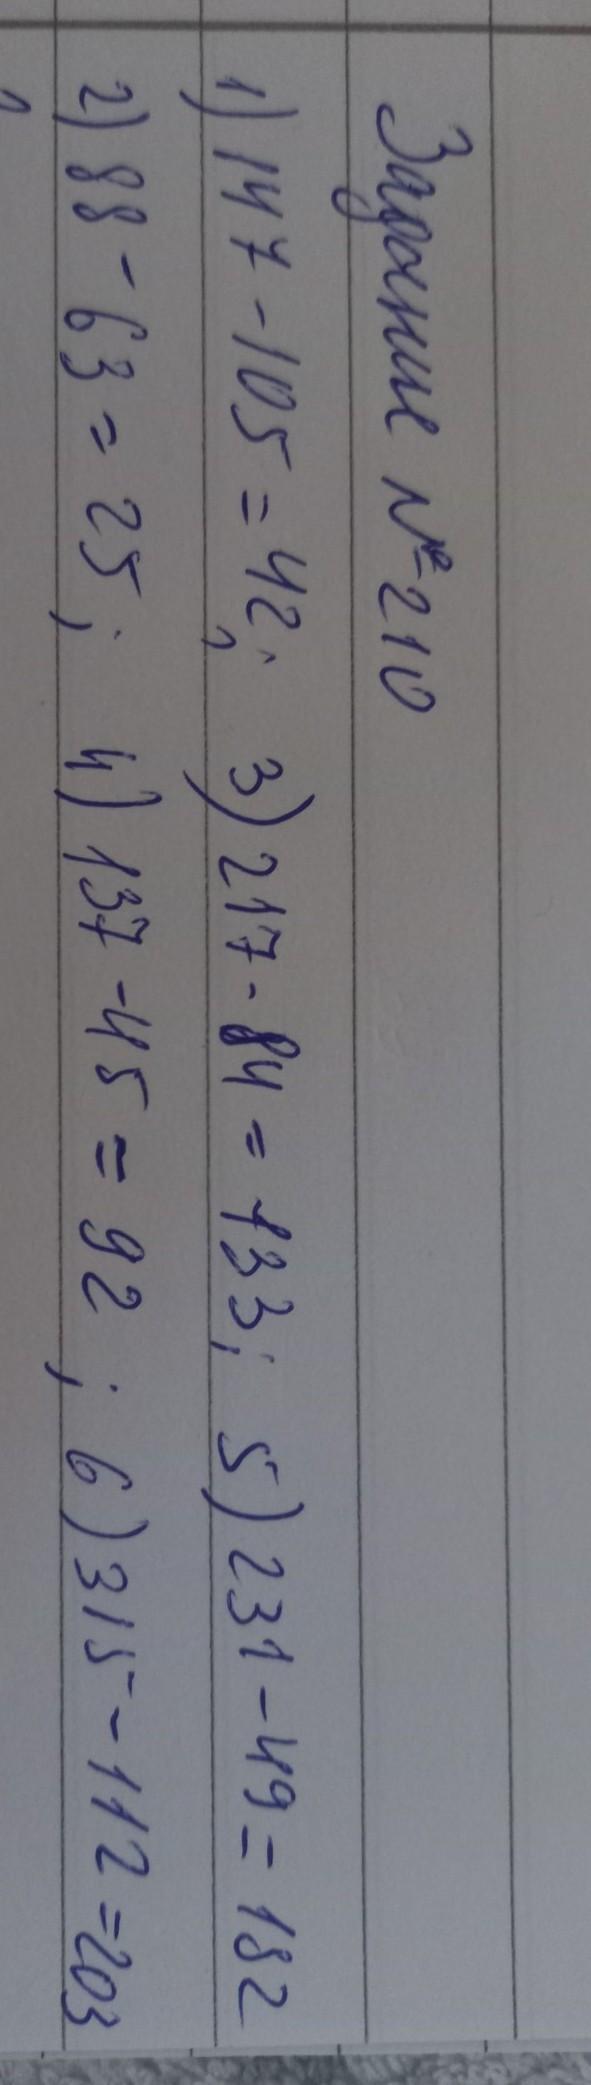 Задание № 210
1) 147 - 105 = 42; 3) 217 - 84 = 133; 5) 231 - 49 = 182
2) 88 - 63 = 25; 4) 137 - 45 = 92; 6) 315 - 112 = 203